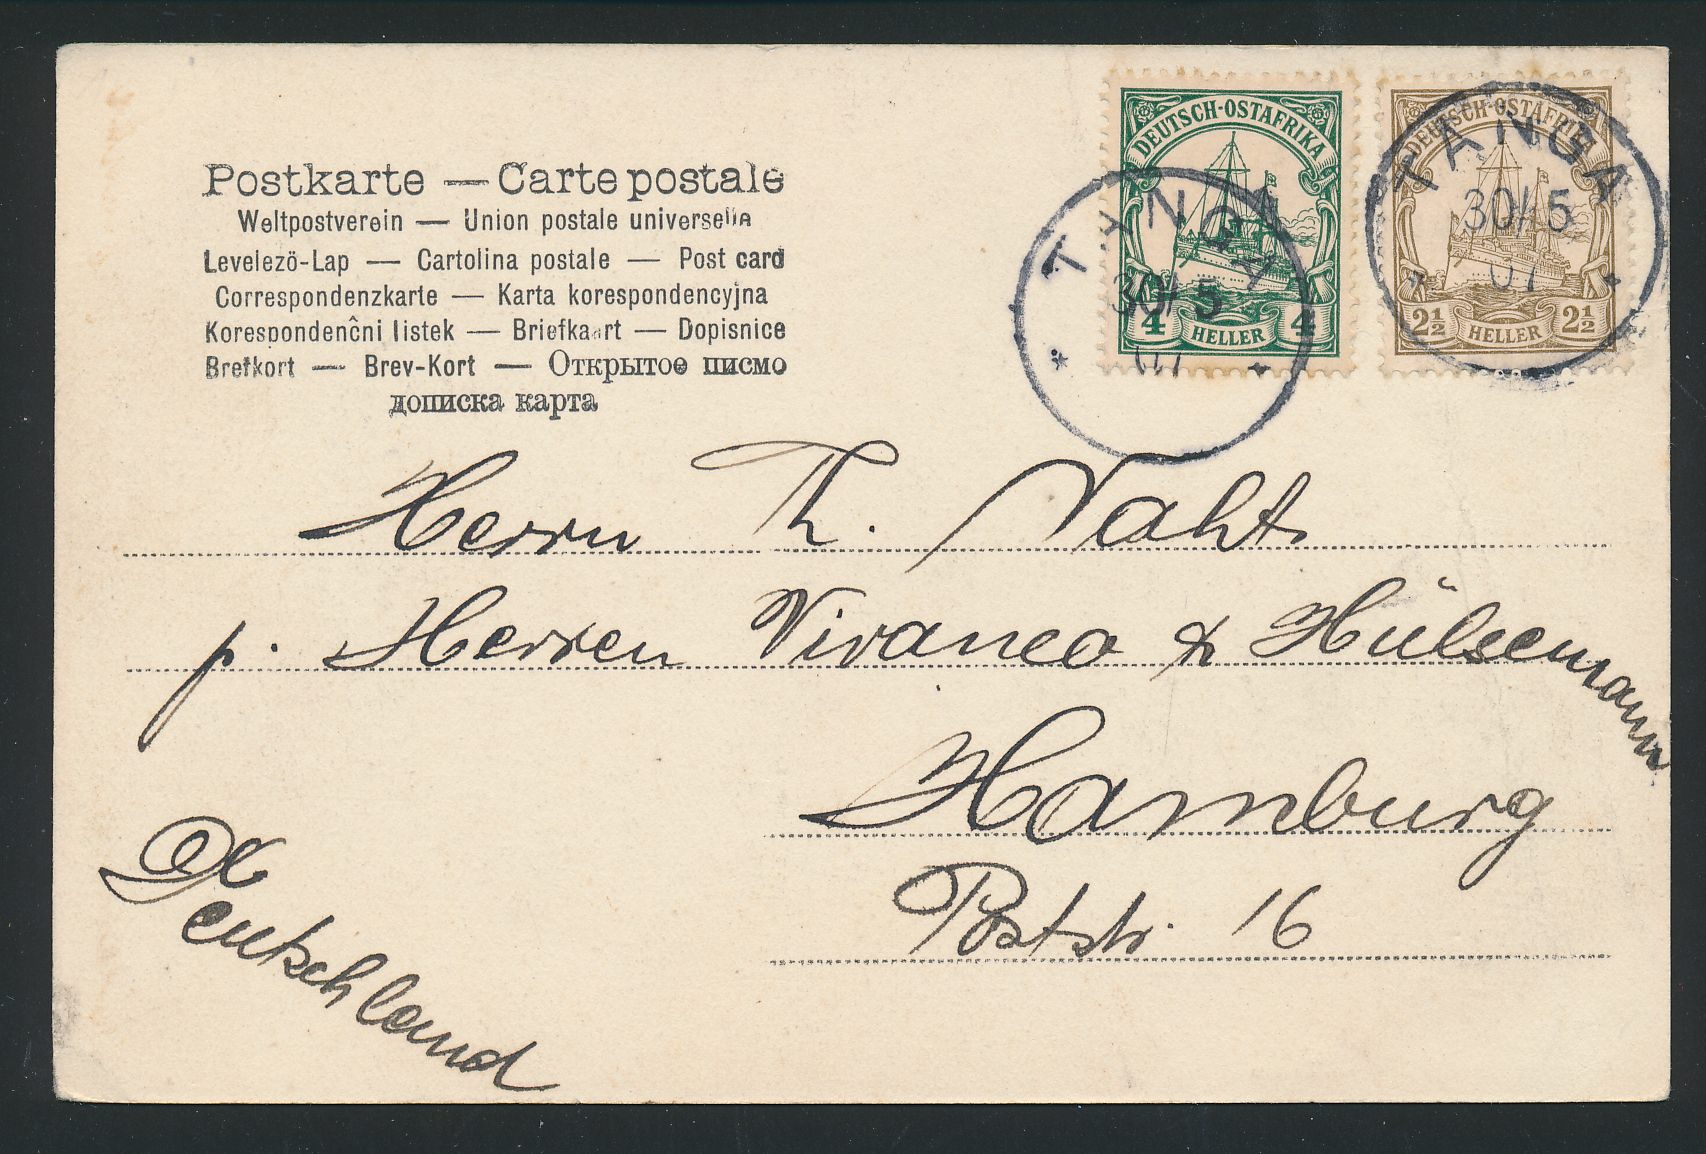 Postkarte — Carte postale
Weltpostverein — Union postale universelle
Levelezö-Lap — Cartolina postale — Post card
Correspondenzkarte — Karta korespondencyjna
Korespondenĉni listek — Briefkaart — Dopisnice
Brefkort — Brev-Kort — Открытое писмо
дописка карта
DEUTSCH-OSTAFRIKA
4 HELLER 4
TANGA
30/5
07
DEUTSCH-OSTAFRIKA
2½ HELLER 2½
TANGA
30/5
07
Herrn Th. Naht
p. Herren Vivanco & Hülsemann
Hamburg
Poststr. 16
Deutschland